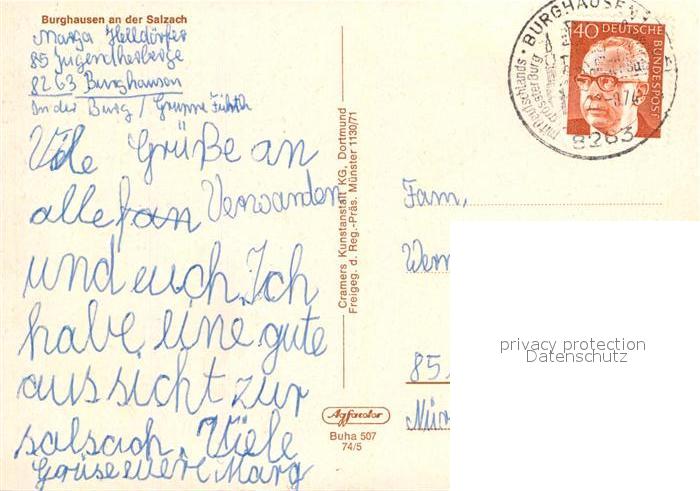 Burghausen an der Salzach
Marga Helldörfer
85 Jugendherberge
8263 Burghausen
In der Burg / Gruppe Fürth
Viele Grüße an
alle fan Verwanden
und euch Ich
habe eine gute
aussicht zur
salsach. Viele
Grüse eure Marg
Cramers Kunstanstalt KG, Dortmund
Freigeg. d. Reg.-Präs. Münster 1130/71
Agfacolor
Buha 507
74/5
BURGHAUSEN
mit Deutschlands
grösster Burg
8263
40 DEUTSCHE
BUNDESPOST
Fam,
85
Nür
privacy protection
Datenschutz